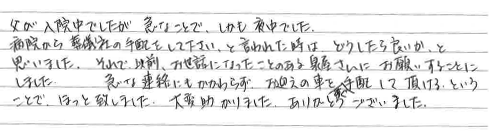 父が入院中でしたが 急なことで、しかも夜中でした。
病院から葬儀社の手配をして下さい、と言われた時は、どうしたら良いか、と
思いました。それで、以前、お世話になったことのある泉屋さんにお願いすることに
しました。 急な連絡にもかかわらず、お迎えの車を手配して頂ける、という
ことで、ほっと致しました。大変助かりました。ありがとうございました。